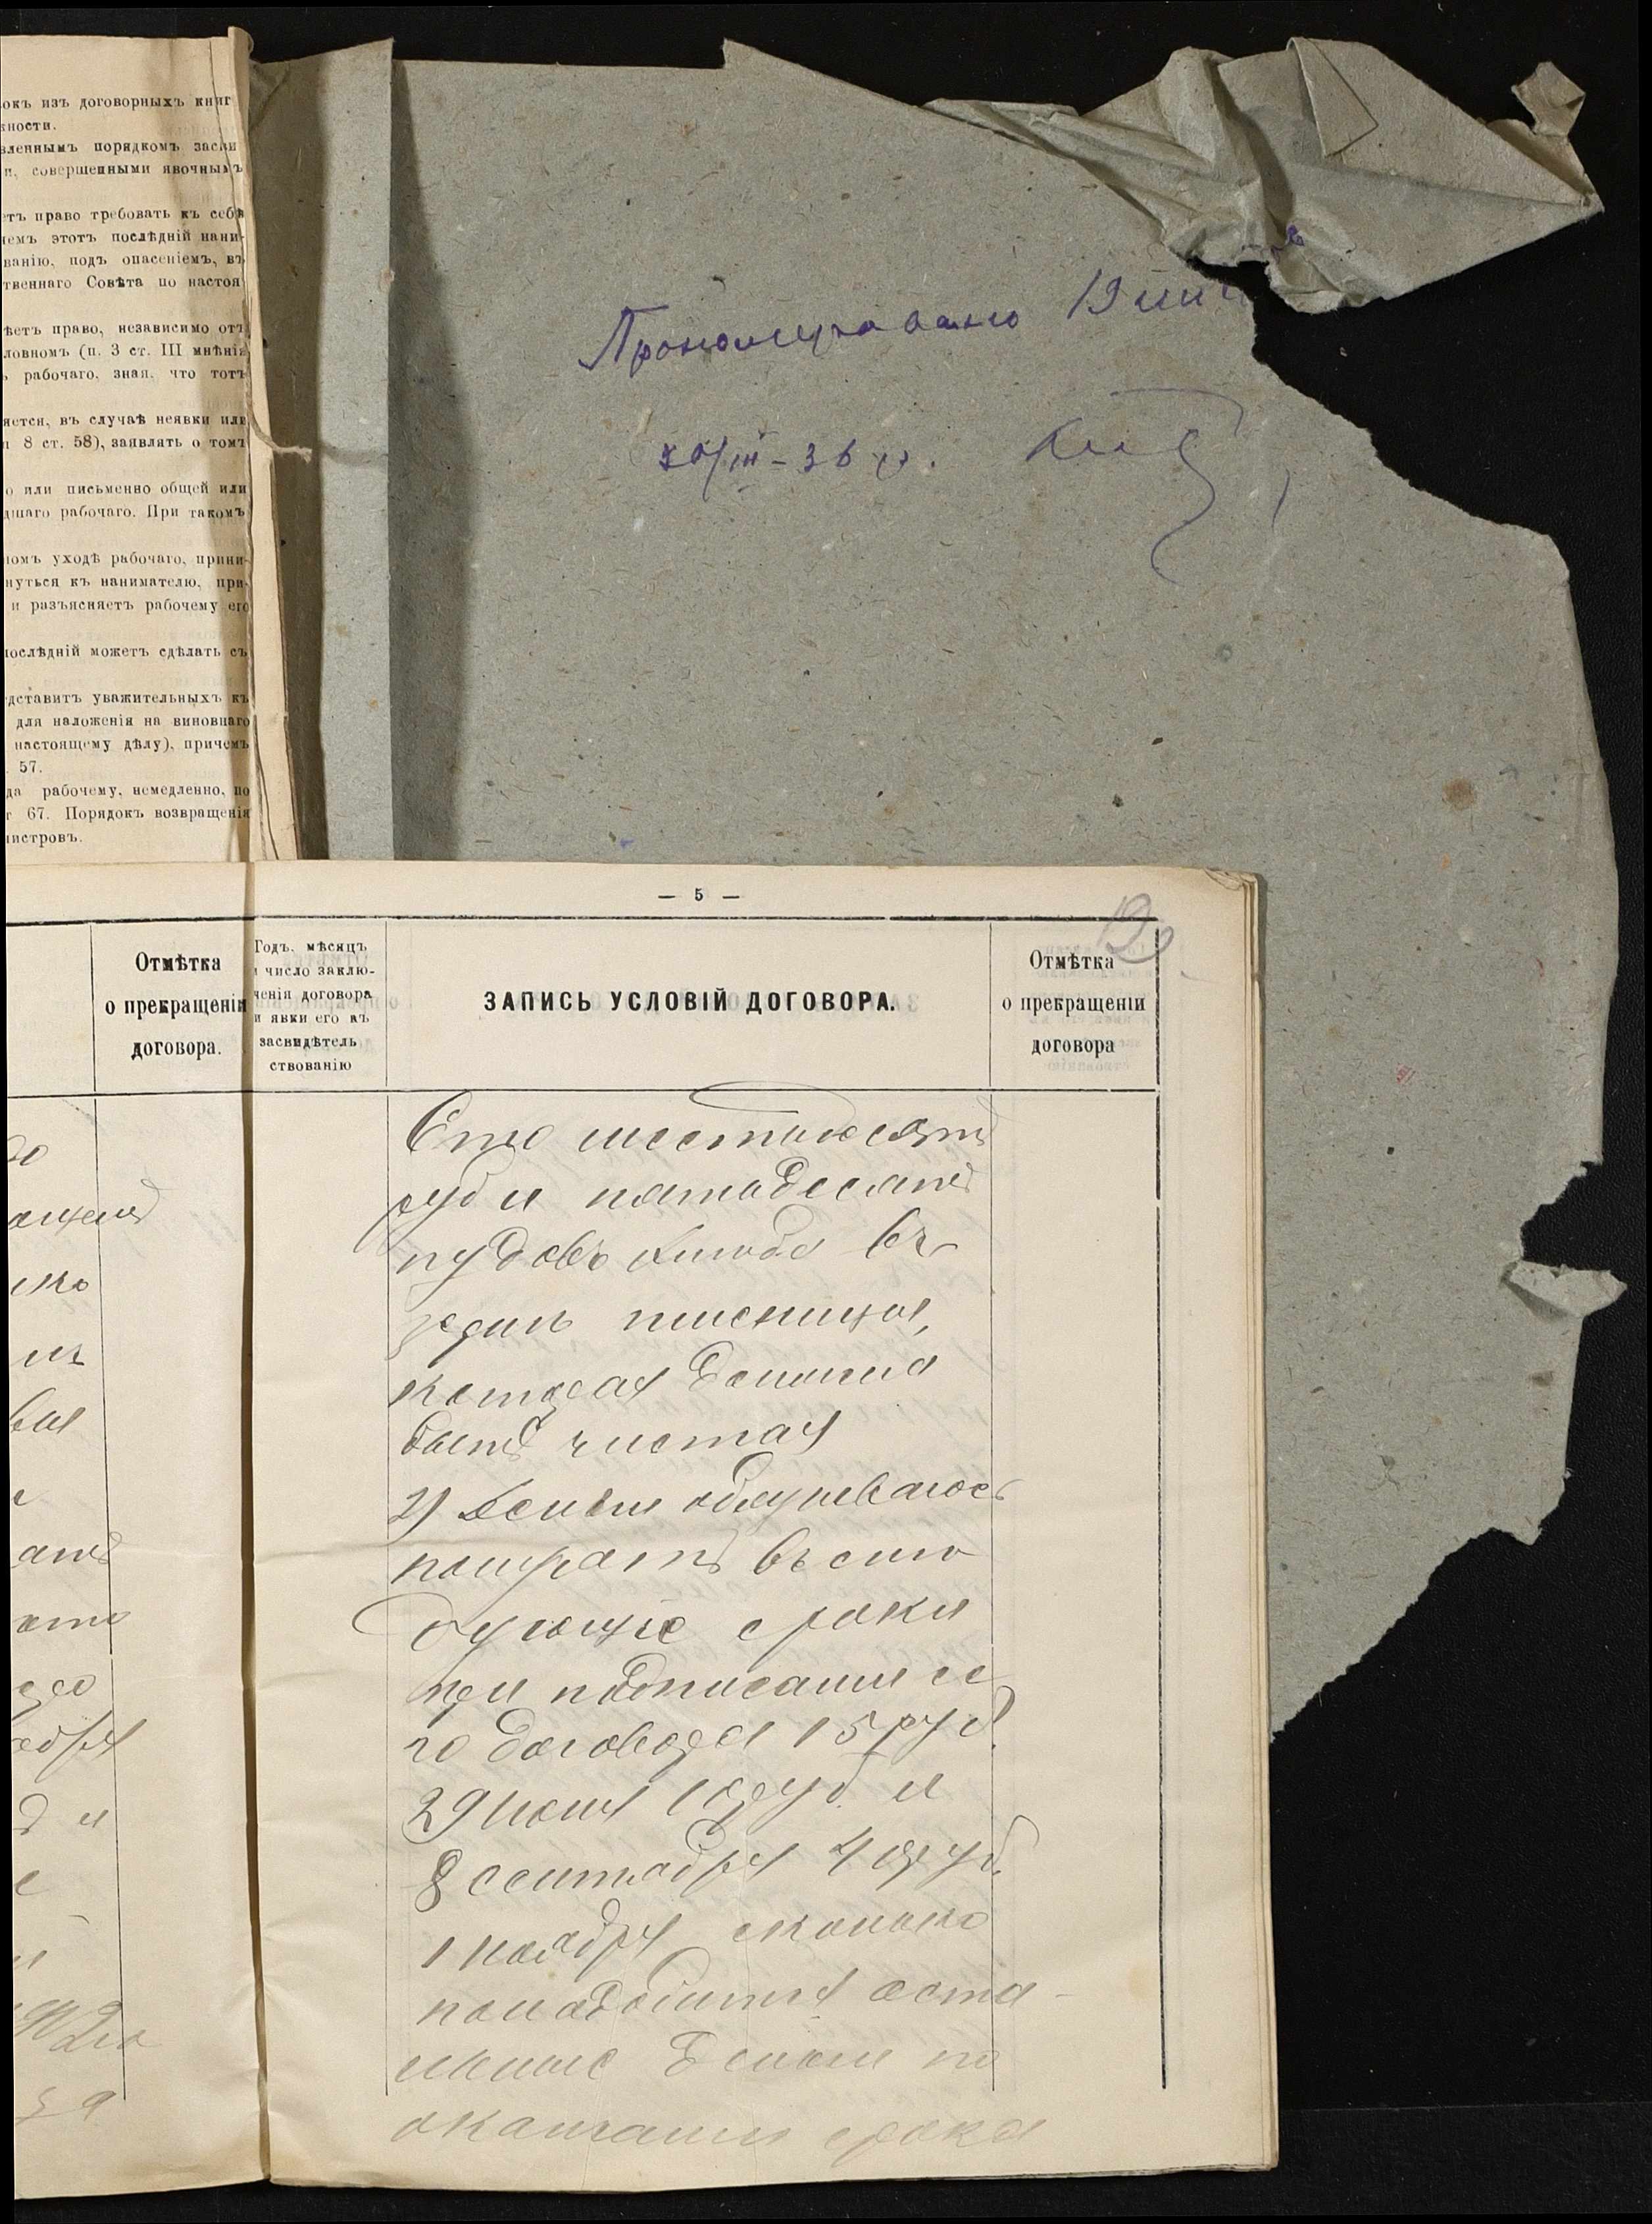 окъ изъ договорныхъ книг
ности.
вленнымъ порядкомъ засви
и, совершенными явочнымъ
етъ право требовать къ себѣ
чемъ этотъ послѣдній нани-
ванію, подъ опасеніемъ, въ
твеннаго Совѣта по настоя
ѣетъ право, независимо отъ
ловномъ (п. 3 ст. III мнѣнія
ь рабочаго, зная, что тотъ
яется, въ случаѣ неявки или
п 8 ст. 58), заявлять о томъ
о или письменно общей или
дшаго рабочаго. При такомъ
номъ уходѣ рабочаго, прини-
нуться къ нанимателю, при-
и разъясняетъ рабочему его
послѣдній можетъ сдѣлать съ
дставитъ уважительныхъ къ
для наложенія на виновнаго
настоящему дѣлу), причемъ
57.
да рабочему, немедленно, по
т 67. Порядокъ возвращенія
нистровъ.
Пронумеровано 19
/III - 36 г.
— 5 —
Отмѣтка
о прекращеніи
договора.
Годъ, мѣсяцъ
и число заклю-
ченія договора
и явки его къ
засвидѣтель
ствованію
ЗАПИСЬ УСЛОВІЙ ДОГОВОРА.
Отмѣтка
о прекращеніи
договора
Сто шестьдесятъ
руб и пятьдесятъ
пудовъ хлѣба въ
зерне пшеницы,
которая должна
быть чистая
2) Деньги обязуеваюсь
получать въ слѣ
дующіе сроки
при подписании се
го договора 15 руб.
29 июня 10 руб. и
8 сентября 40 руб.
1 ноября сколько
понадобится оста-
льные деньги по
окончании срока